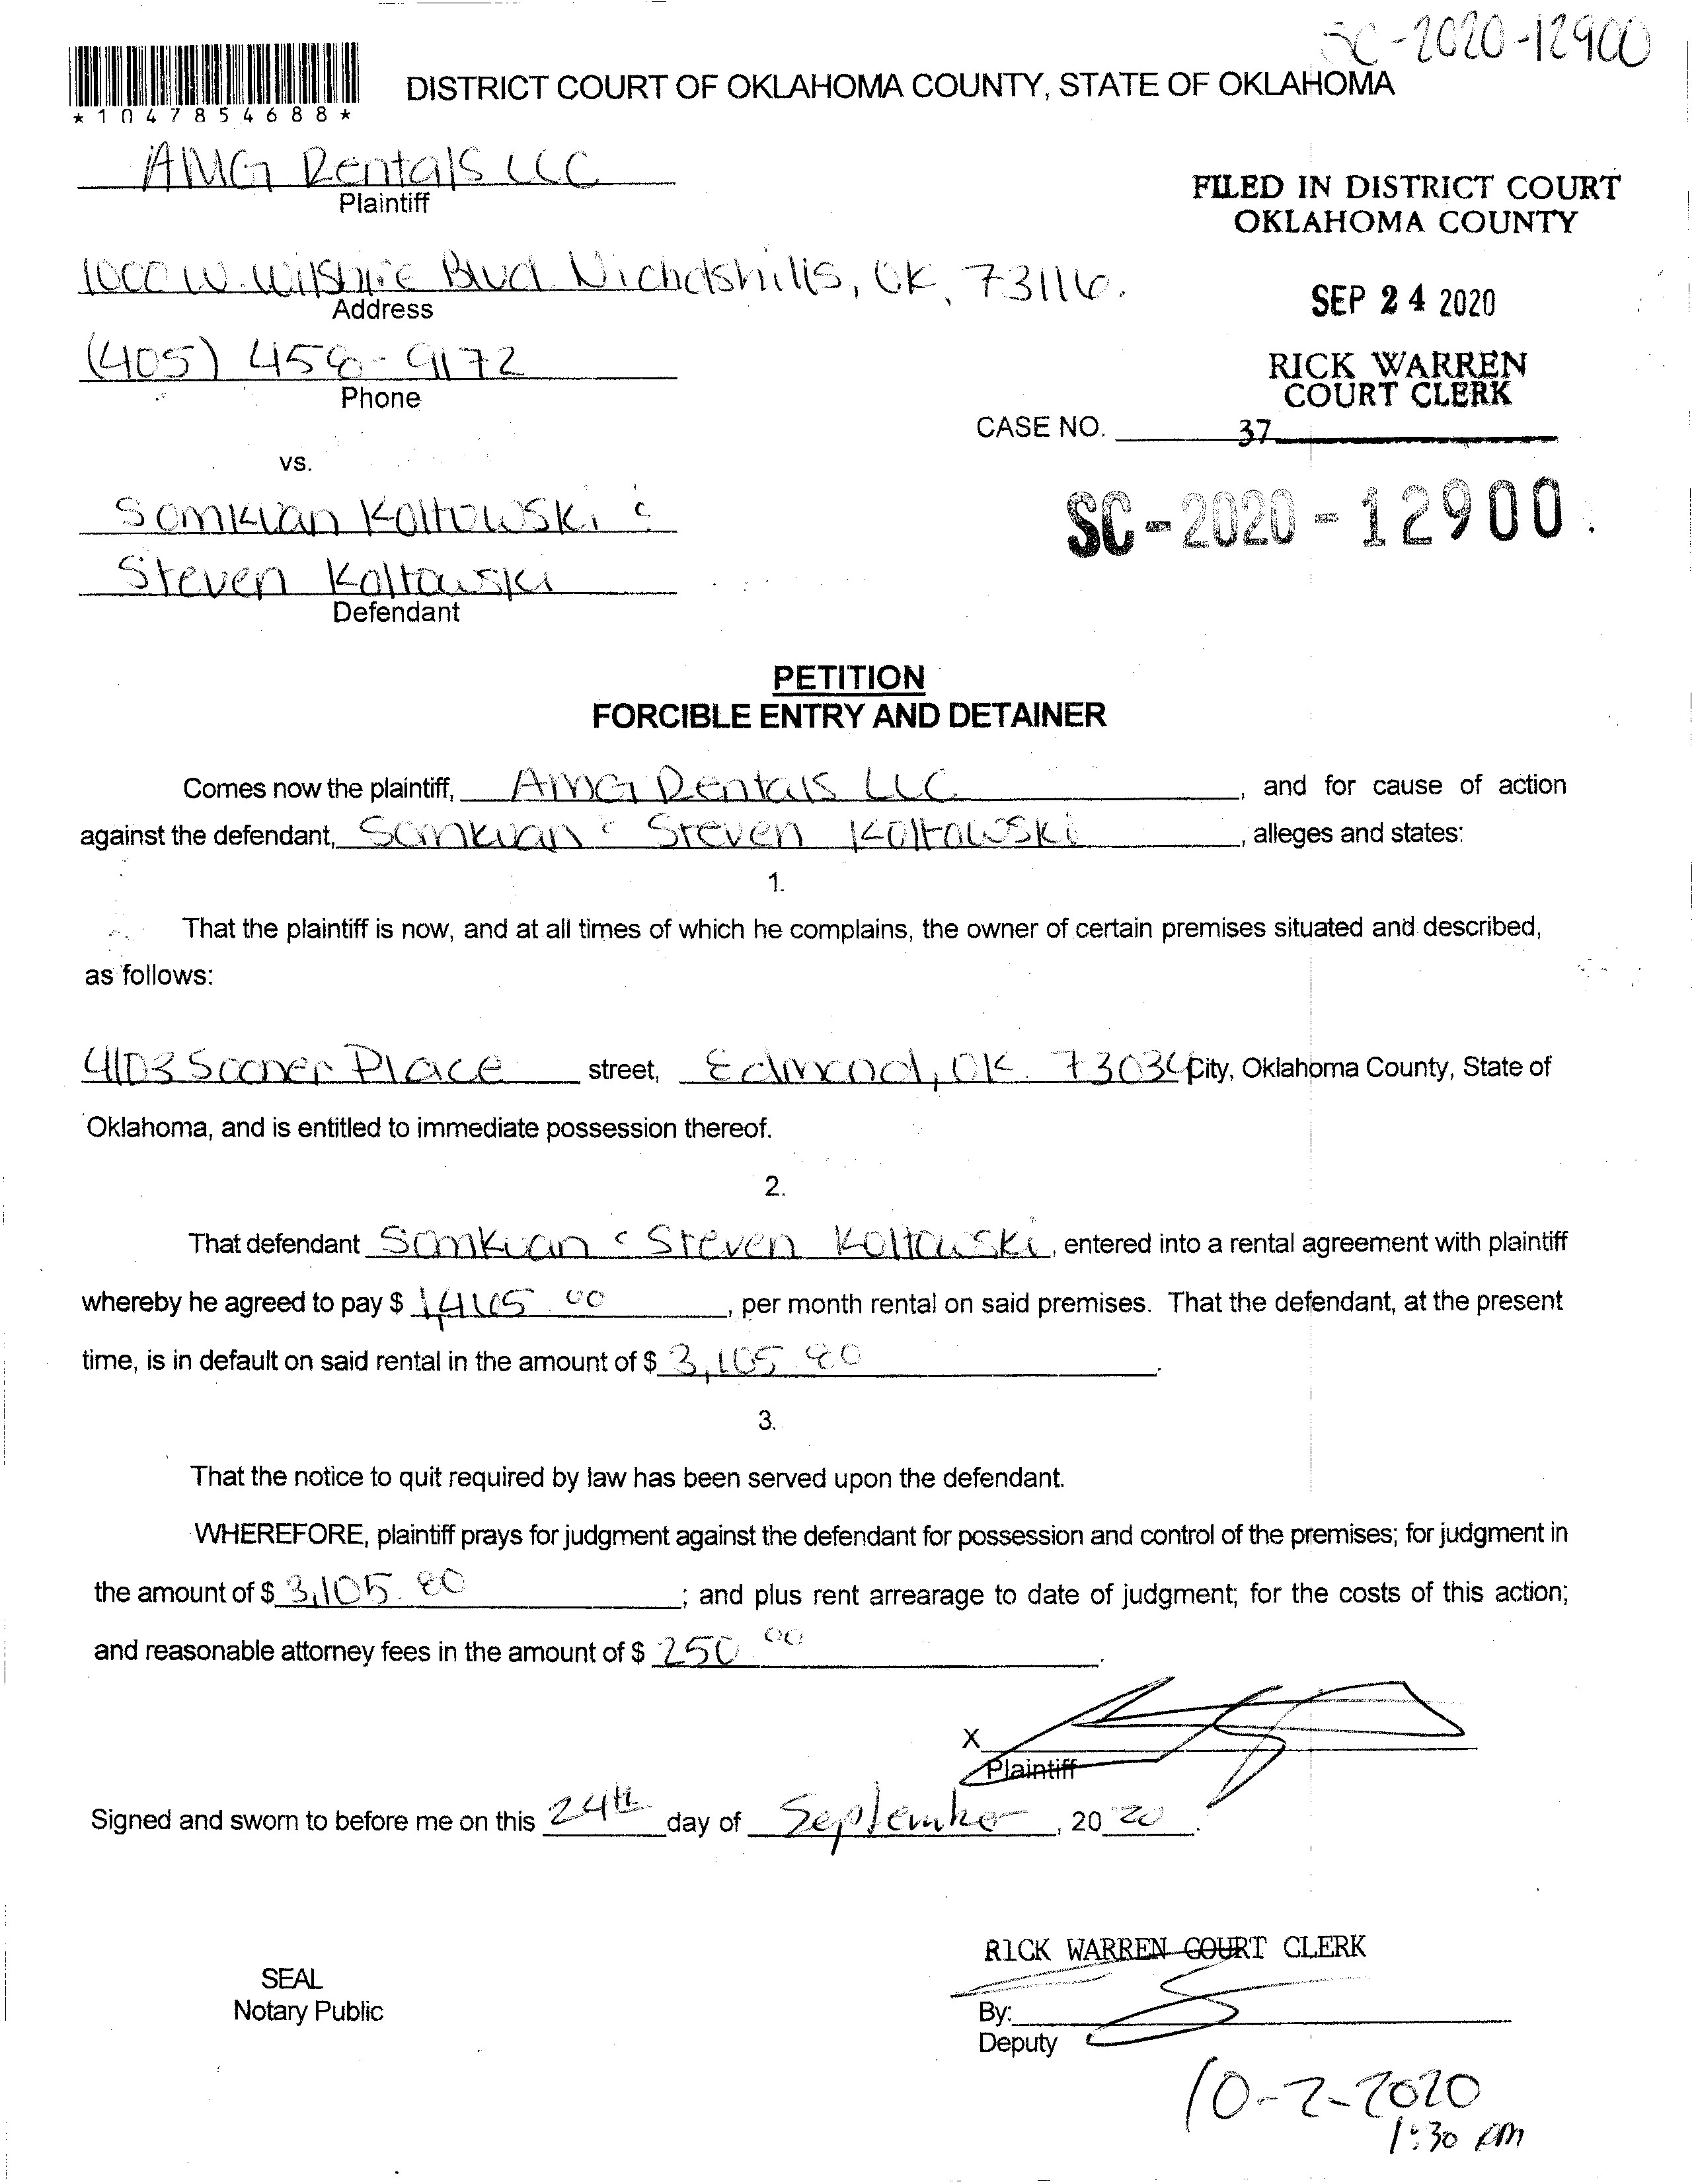 SC-2020-12900
*1047854688*
DISTRICT COURT OF OKLAHOMA COUNTY, STATE OF OKLAHOMA
AMG Rentals LLC
Plaintiff
FILED IN DISTRICT COURT
OKLAHOMA COUNTY
1000 W. Wilshire Blvd. Nicholshills, OK, 73116.
Address
SEP 24 2020
(405) 458-9172
Phone
RICK WARREN
COURT CLERK
CASE NO. 37
vs.
SC-2020-12900
Somkuan Koltowski &
Steven Koltowski
Defendant
PETITION
FORCIBLE ENTRY AND DETAINER
Comes now the plaintiff, AMG Rentals LLC, and for cause of action
against the defendant, Somkuan & Steven Koltowski, alleges and states:
1.
That the plaintiff is now, and at all times of which he complains, the owner of certain premises situated and described,
as follows:
4103 Sooner Place street, Edmond, OK. 73034 City, Oklahoma County, State of
Oklahoma, and is entitled to immediate possession thereof.
2.
That defendant Somkuan & Steven Koltowski, entered into a rental agreement with plaintiff
whereby he agreed to pay $ , per month rental on said premises. That the defendant, at the present
time, is in default on said rental in the amount of $ 3,105.80.
3.
That the notice to quit required by law has been served upon the defendant.
WHEREFORE, plaintiff prays for judgment against the defendant for possession and control of the premises; for judgment in
the amount of $ 3,105.80; and plus rent arrearage to date of judgment; for the costs of this action;
and reasonable attorney fees in the amount of $ 250.00.
X
Plaintiff
Signed and sworn to before me on this 24th day of September, 2020.
RICK WARREN COURT CLERK
SEAL
Notary Public
By:
Deputy
10-2-2020
1:30 PM